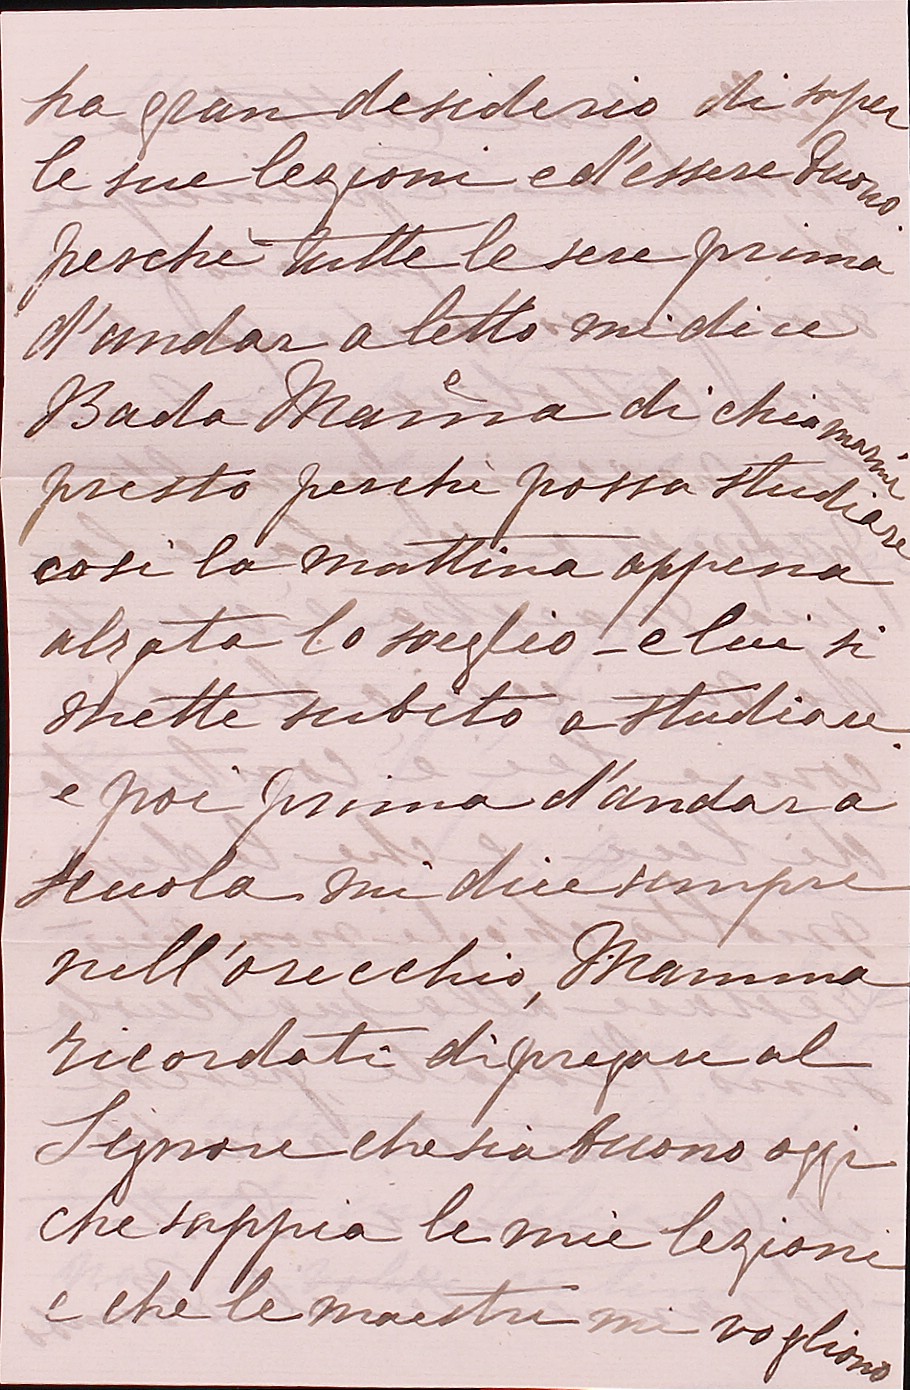 ha gran desiderio di saper
le sue lezioni e d'essere buono
perchè tutte le sere prima
d'andar a letto mi dice
Bada Mamma di chiamarmi
presto perchè possa studiare
così la mattina appena
alzata lo sveglio - e lui si
mette subito a studiare
e poi prima d'andar a
scuola mi dice sempre
nell'orecchio, Mamma
ricordati di pregare al
Signore che sia buono oggi
che sappia le mie lezioni
e che le maestre mi vogliono